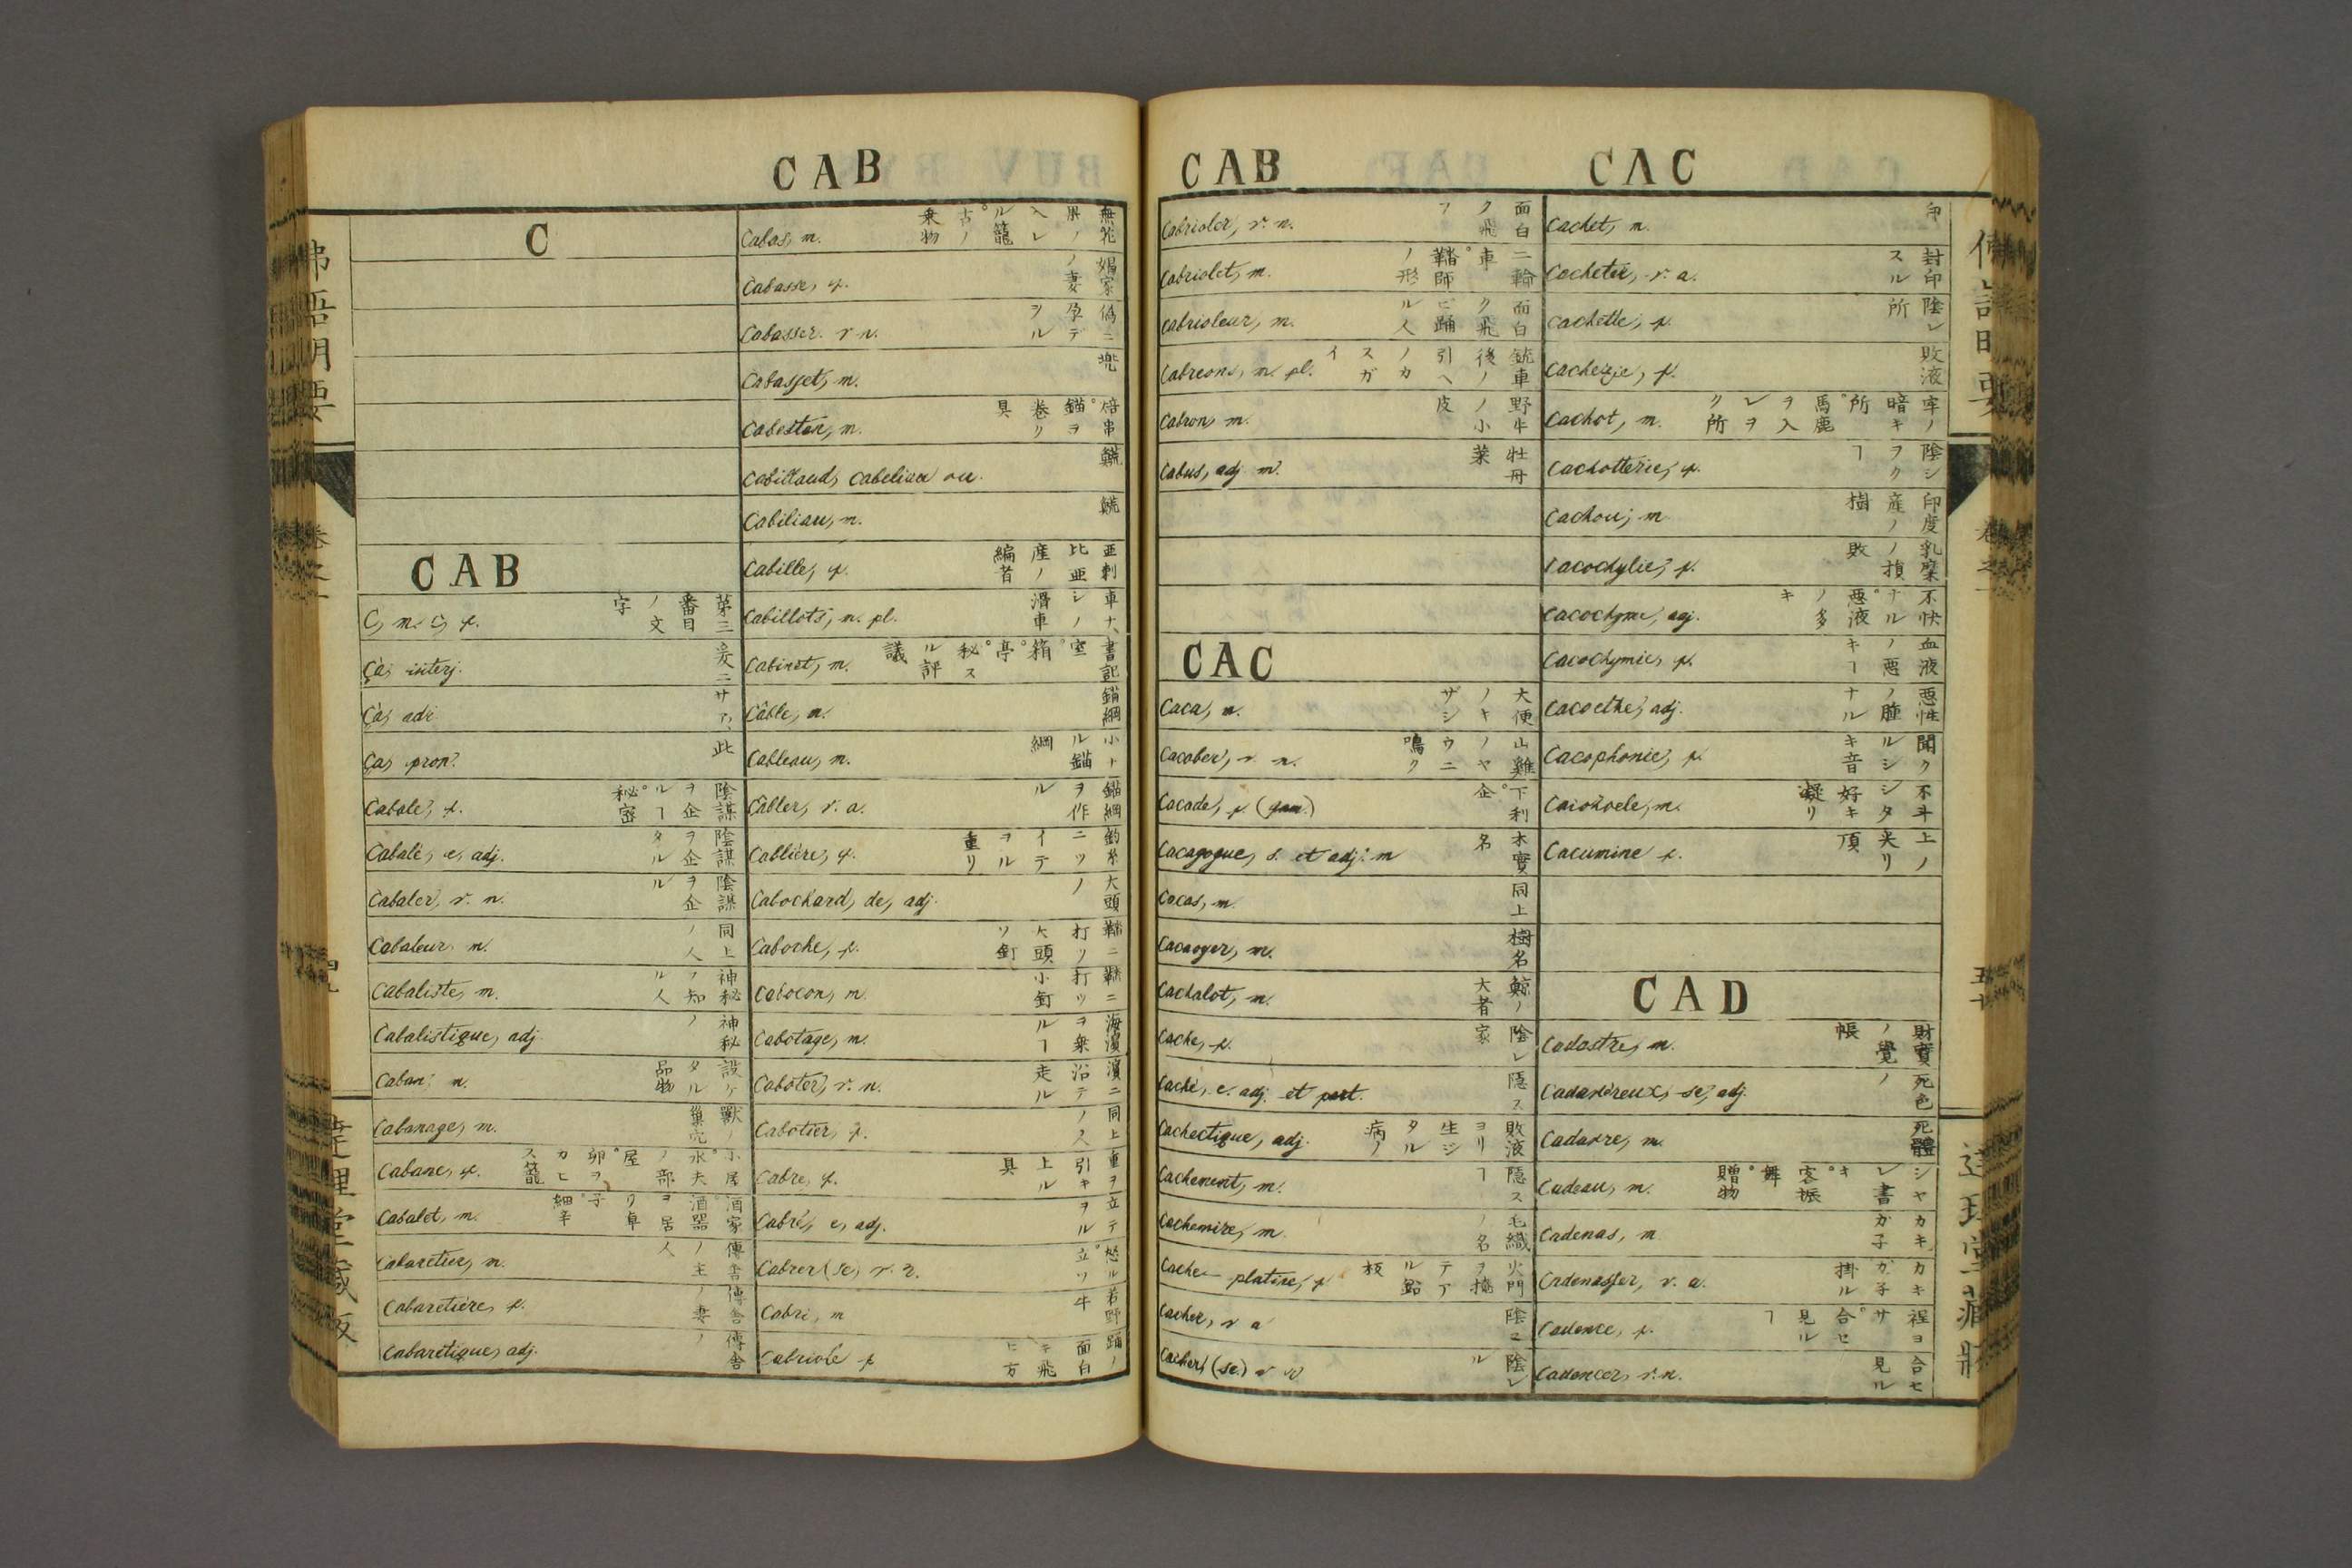 CAB
C
CAB
C, m. c, f. 第三番目ノ文字
Çà, interj. 爰ニサア
Çà, adv.
Ça, pron. 此
Cabale, f. 陰謀ヲ企ルヿ。秘密
Cabalé, e, adj. 陰謀ヲ企タル
Cabaler, v. n. 陰謀ヲ企ル
Cabaleur, m. 同上ノ人
Cabaliste, m. 神秘ヲ知ル人
Cabalistique, adj. 神秘ノ
Caban, m. 設ケタル品物
Cabanage, m. 獣ノ巣穴
Cabane, f. 小屋。水夫ノ部屋。卵ヲカヒス籠
Cabalet, m. 酒家
Cabaretier, m. 傳舎ノ主人
Cabaretière, f. 傳舎ノ妻
Cabaretique, adj. 傳舎ノ
Cabas, m. 無花果ノ入レル籠。古ノ乗物
Cabasse, f. 娼家ノ妻
Cabasser, v. n.
Cabasset, m. 兜
Cabestan, m. 焙串。錨ヲ巻ク具
Cabillaud, cabeliau ou. 鱈
Cabiliau, m. 鱈
Cabille, f. 亜剌比亜産ノ編者
Cabillots, m. pl. 滑車
Cabinet, m. 書記室。箱。亭。秘スル評議
Câble, m. 錨綱
Cableau, m. 小ナル錨綱
Câbler, v. a. 錨綱ヲ作ル
Cablière, f. 釣糸ニツイテヲル重リ
Cabochard, de, adj. 大頭ノ
Caboche, f. 打ツ大頭ノ釘
Cabocon, m. 打ツ小釘
Cabotage, m. 海濱ヲ乗ルヿ
Caboter, v. n. 濱ニ沿テ走ル
Cabotier, f. 同上ノ人
Cabre, f. 重ヲ引キ上ル具
Cabré, e, adj. 立テヲル
Cabrer (se), v. r. 怒ル。立ツ
Cabri, m 若野牛
Cabriole f 踊ノ面白キ飛ヒ方
CAB
CAC
Cabrioler, v. n. 面白ク飛フ
Cabriolet, m. 二輪車。鞜師ノ形
Cabrioleur, m. 面白ク飛ビ踊ル人
Cabreons, m. pl. 銃車後ノ引ヘノカスガイ
Cabron, m. 野牛ノ小皮
Cabus, adj. m. 牡丹菜
CAC
Caca, m. 大便
Cacaber, v. n. 山雞ノヤウニ鳴ク
Cacade, f. 下利。企
Cacagogue, s. et adj. m 木實名
Cacas, m. 同上
Cacaoyer, m. 樹名
Cachalot, m. 鯨ノ大者
Cache, f. 陰レ家
Caché, e. adj. et part. 隠ス
Cachectique, adj. 敗液ヨリ生ジタル病ノ
Cachement, m. 隠スヿ
Cachemire, m. 毛織ノ名
Cache-platine, f 火門ヲ掩テアル鉛板
Cacher, v a 陰ス
Cacher (se) v r 陰レル
Cachet, m. 印
Cacheter, v. a. 封印スル
Cachette, f. 陰レ所
Cachexie, f. 敗液
Cachot, m. 牢ノ暗キ所。馬鹿ヲ入レヲク所
Cachotterie, f. 陰シヲクヿ
Cachou, m 印度産ノ樹
Cacochylie, f. 乳糜ノ損敗
Cacochyme, adj. 不快ナル。悪液ノ多キ
Cacochymie, f. 血液ノ悪キヿ
Cacoethe, adj. 悪性ノ腫ナル
Cacophonie, f. 聞クルシキ音
Cacumine f. 上ノ尖リ頂
CAD
Cadastre, m. 財寶ノ覺帳
Cadavéreux, se, adj. 死色ノ
Cadavre, m. 死體
Cadeau, m. シヤレ書キ。客振舞。贈物
Cadenas, m カキガ子
Cadenasser, v. a. カキガ子掛ル
Cadence, f. 程ヨサ。合セ見ルヿ
Cadencer, v. n. 合セ見ル
佛語明要
達理堂蔵版